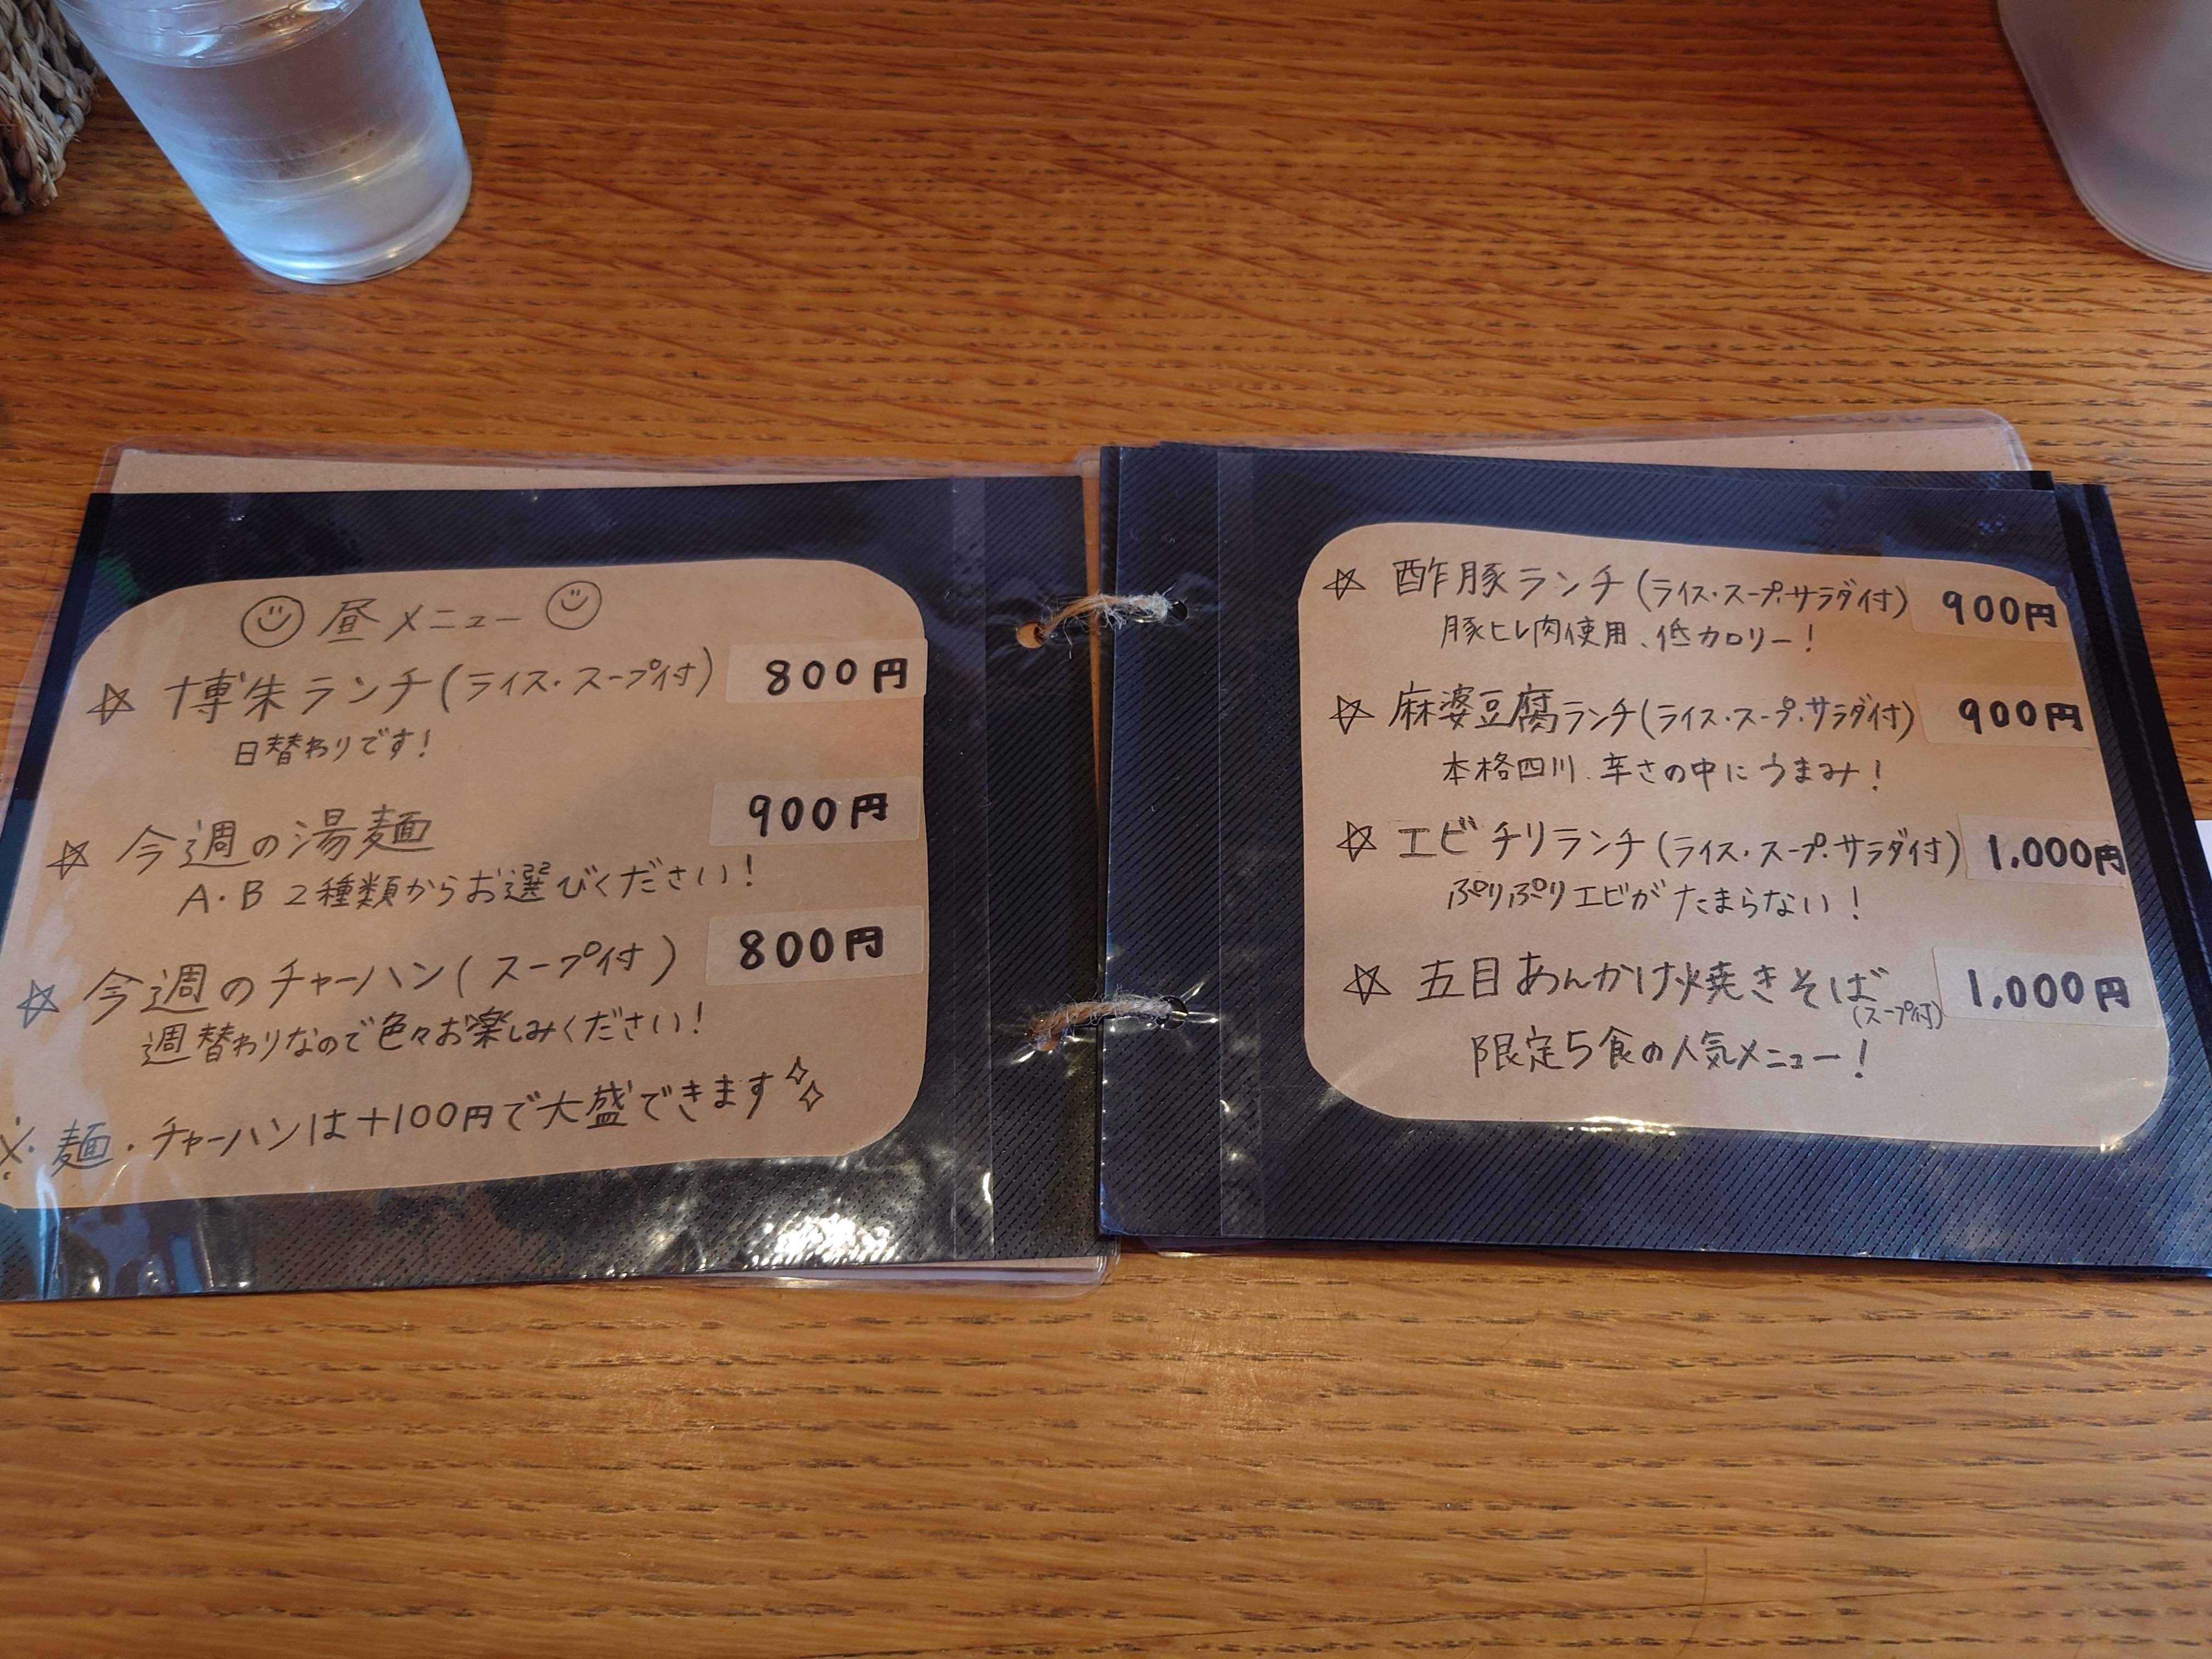 昼メニュー
☆ 博朱ランチ(ライス・スープ付) 800円
日替わりです!
☆ 今週の湯麺 900円
A・B 2種類からお選びください!
☆ 今週のチャーハン(スープ付) 800円
週替わりなので色々お楽しみください!
※麺・チャーハンは+100円で大盛できます
☆ 酢豚ランチ(ライス・スープ・サラダ付) 900円
豚ヒレ肉使用、低カロリー!
☆ 麻婆豆腐ランチ(ライス・スープ・サラダ付) 900円
本格四川、辛さの中にうまみ!
☆ エビチリランチ(ライス・スープ・サラダ付) 1,000円
ぷりぷりエビがたまらない!
☆ 五目あんかけ焼きそば(スープ付) 1,000円
限定5食の人気メニュー!